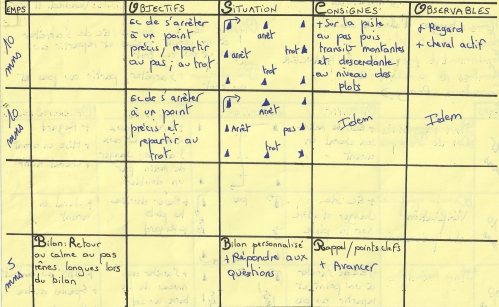 TEMPS OBJECTIFS SITUATION CONSIGNES OBSERVABLES
10 mns
EC de s'arrêter
à un point
précis, repartir
au pas ; au trot
arrêt
arrêt trot
trot
+ Sur la piste
au pas puis
transit° montantes
et descendante
au niveau des
plots
+ Regard
+ cheval actif
10 mns
EC de s'arrêter
à un point
précis et
repartir au
trot
Arrêt
Arrêt pas
trot
Idem
Idem
5 mns
Bilan : Retour
au calme au pas
rênes longues lors
du bilan
Bilan personnalisé
+ Répondre aux
questions
Rappel / points clefs
+ Avancer